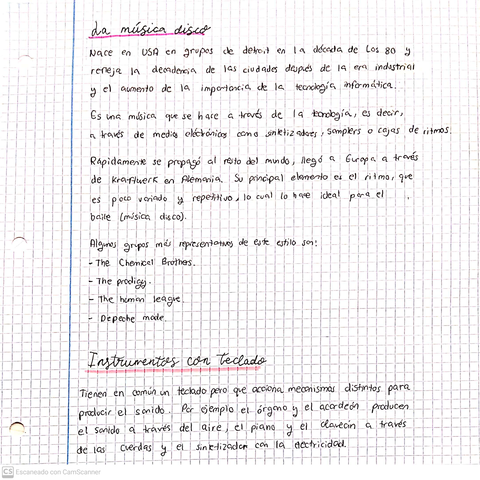 La música disco
Nace en USA en grupos de detroit en la década de los 80 y
refleja la decadencia de las ciudades después de la era industrial
y el aumento de la importancia de la tecnología informática.
Es una música que se hace a través de la tecnología, es decir,
a través de medios electrónicos como sinetizadores, samplers o cajas de ritmos.
Rápidamente se propagó al resto del mundo, llegó a Europa a través
de Kraftwerk en Alemania. Su principal elemento es el ritmo, que
es poco variado y repetitivo, lo cual lo hace ideal para el
baile (música disco).
Algunos grupos más representativos de este estilo son:
- The Chemical Brothers.
- The prodigy.
- The human league.
- Depeche mode.
Instrumentos con teclado
Tienen en común un teclado pero que acciona mecanismos distintos para
producir el sonido. Por ejemplo el órgano y el acordeón producen
el sonido a través del aire, el piano y el clavecín a través
de las cuerdas y el sinetizador con la electricidad.
CS Escaneado con CamScanner